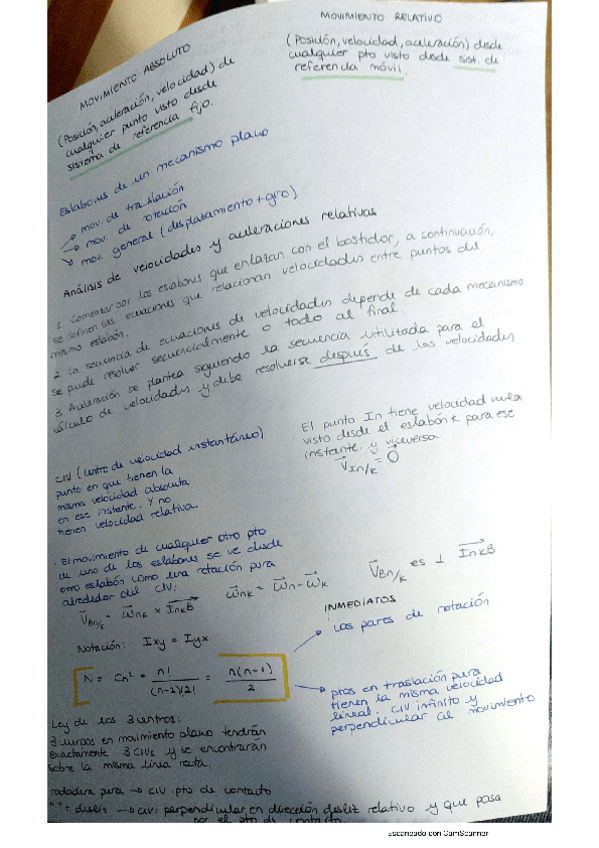 MOVIMIENTO ABSOLUTO
(Posición, aceleración, velocidad) de
cualquier punto visto desde
sistema de referencia fijo.
MOVIMIENTO RELATIVO
(Posición, velocidad, aceleración) desde
cualquier pto visto desde sist. de
referencia móvil.
Eslabones de un mecanismo plano
mov. de traslación
mov. de rotación
mov. general (desplasamiento + giro)
Análisis de velocidades y aceleraciones relativas
1. Comenzar por los eslabones que enlazan con el bastidor, a continuación,
se definen las ecuaciones que relacionan velocidades entre puntos del
mismo eslabón.
2. La secuencia de ecuaciones de velocidades depende de cada mecanismo
se puede resolver secuencialmente o todo al final
3. Aceleración se plantea siguiendo la secuencia utilizada para el
cálculo de velocidades y debe resolverse después de las velocidades
CIV (centro de velocidad instantáneo)
punto en que tienen la
misma velocidad absoluta
en ese instante. Y no
tienen velocidad relativa.
El punto In tiene velocidad nula
visto desde el eslabón k para ese
instante. y viceversa
V⃗In/k = 0⃗
· El movimiento de cualquier otro pto
de uno de los eslabones se ve desde
otro eslabón como una rotación pura
alrededor del CIV:
V⃗Bn/k = ω⃗nk × InkB⃗
ω⃗nk = ω⃗n - ω⃗k
V⃗Bn/k es ⊥ InkB⃗
Notación: Ixy = Iyx
N = Cn² = n! / (n-2)!2! = n(n-1) / 2
INMEDIATOS
Los pares de rotación
ptos en traslación pura
tienen la misma velocidad
lineal. CIV infinito y
perpendicular al movimiento
Ley de los 3 centros:
3 cuerpos en movimiento plano tendrán
exactamente 3 CIVs y se encontrarán
sobre la misma línea recta.
rodadura pura → CIV: pto de contacto
" " + desliz → CIV: perpendicular en dirección desliz relativo y que pasa
por el pto de contacto
Escaneado con CamScanner